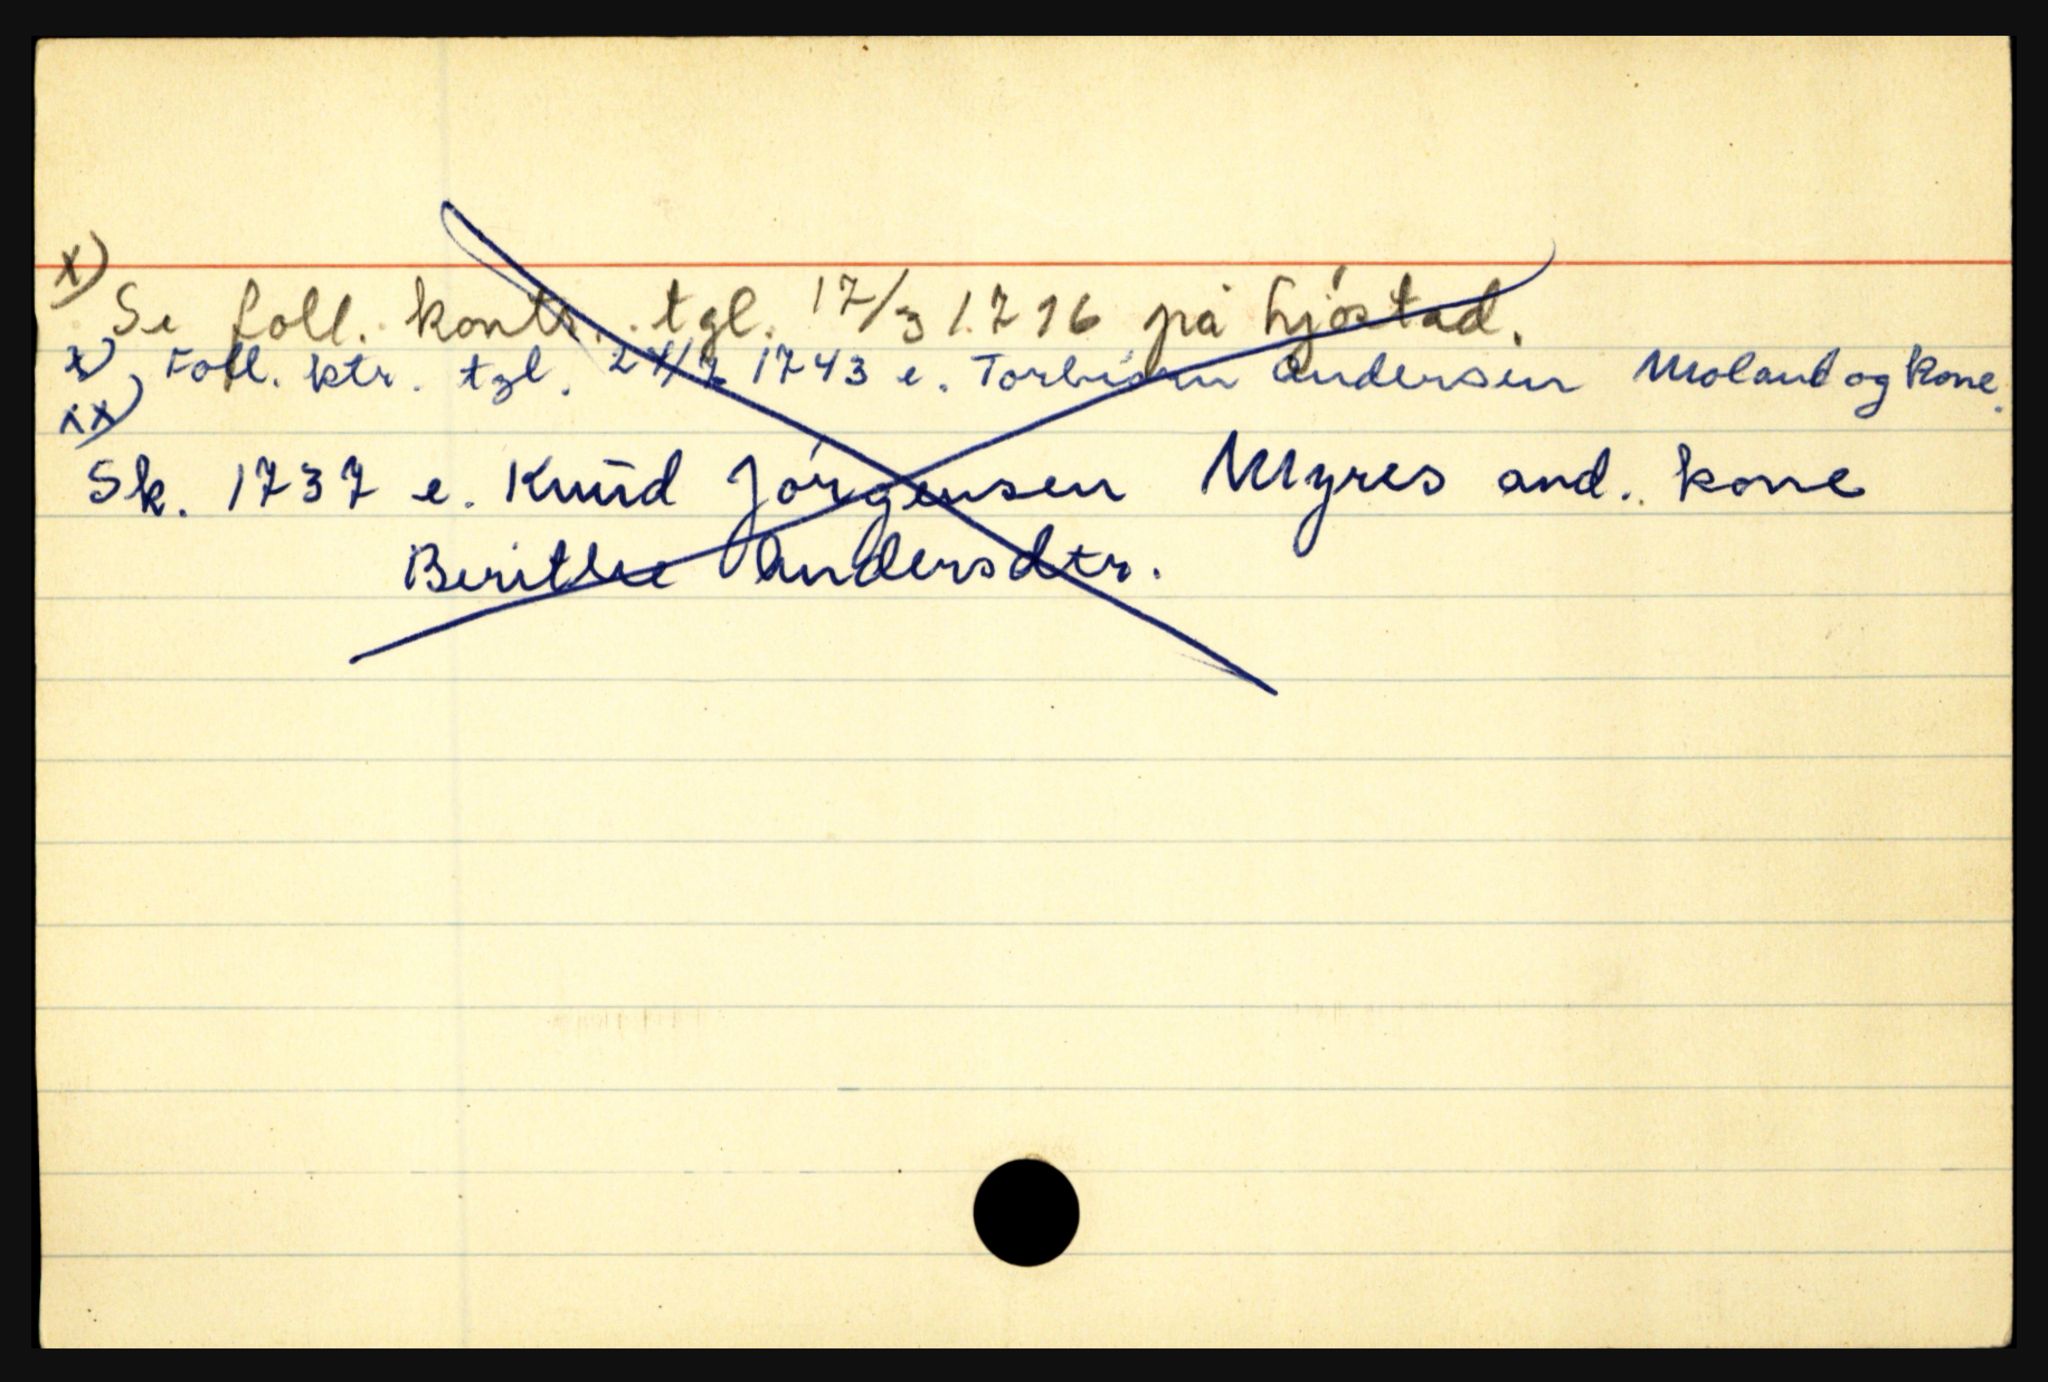 x)
Se foll. kontr. tgl. 17/3 1716 på Ljøstad.
x) Foll. ktr. tgl. 1743 e. Torbiørn Andersen Moland og kone.
xx)
Sk. 1737 e. Knud Jørgensen Myres and. kone
Berithe Andersdtr.